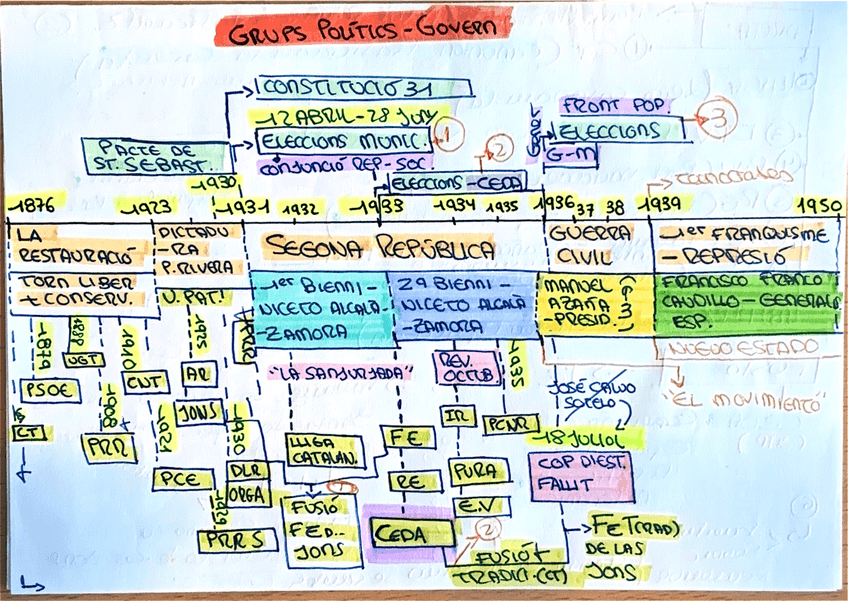 GRUPS POLÍTICS - GOVERN
CONSTITUCIÓ 31
12 ABRIL - 28 JUNY
ELECCIONS MUNIC. 1
CONJUNCIÓ REP-SOC.
PACTE DE
ST. SEBAST..
2
ELECCIONS - CEDA
FRONT POP.
ELECCIONS 3
G-M
TECNOCRATES
1876
1923
1930
1931
1932
1933
1934
1935
1936
37
38
1939
1950
LA
RESTAURACIÓ
TORN LIBER
+ CONSERV.
DICTADU
-RA
P. RIVERA
U. PAT.
SEGONA REPÚBLICA
1er BIENNI -
NICETO ALCALÀ -
-ZAMORA
2º BIENNI -
NICETO ALCALÀ
-ZAMORA
GUERRA
CIVIL
MANUEL
AZAÑA
-PRESID.
3
-1er FRANQUISME
-REPRESIÓ
FRANCISCO FRANCO
CAUDILLO - GENERAL
ESP.
NUEVO ESTADO
"EL MOVIMIENTO"
1879
PSOE
CT
1888
UGT
1908
PRR
1910
CNT
1921
PCE
1925
AR
JONS
1929
PRRS
1930
DLR
ORGA
"LA SANJURJADA"
LLIGA
CATALAN.
1
FUSIÓ
FE D..
JONS
FE
RE
CEDA
REV.
OCTUB.
IR
PURA
E.V
1935
PCNR
2
FUSIÓ +
TRADICI. (CT)
JOSÉ CALVO
SOTELO
-18 JULIOL
COP D'EST.
FALLIT
FET (TRAD)
DE LAS
JONS